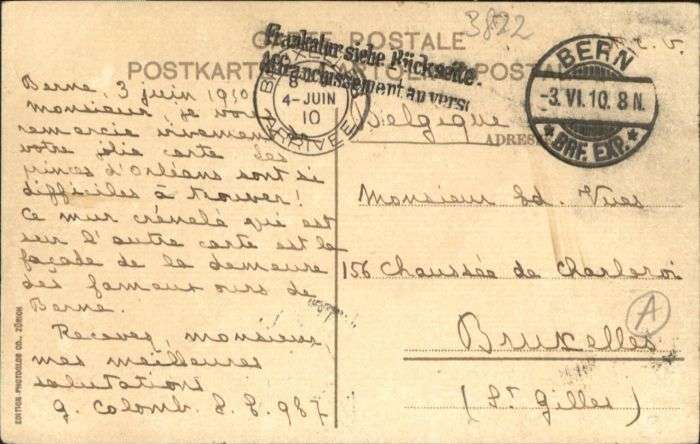 3822
CARTE POSTALE
POSTKARTE
Frankatur siehe Rückseite.
Affranchissement au verso
4-JUIN
10
ARRIVEE
BERN
-3.VI.10.8N.
* BRF. EXP. *
C. V.
Berne, 3 juin 1910
Monsieur, je vous
remercie vivement
votre jolie carte les
princes d'Orléans sont si
difficiles à trouver!
Ce mur crénelé qui est
sur l'autre carte est la
façade de la demeure
des fameux ours de
Berne.
Recevez, monsieur,
mes meilleures
salutations
G. Colomb. S. S. 987
Belgique
ADRES
Monsieur Ed. Vives
156 Chaussée de Charleroi
Bruxelles
(St Gilles)
A
EDITION PHOTOGLOB CO., ZÜRICH